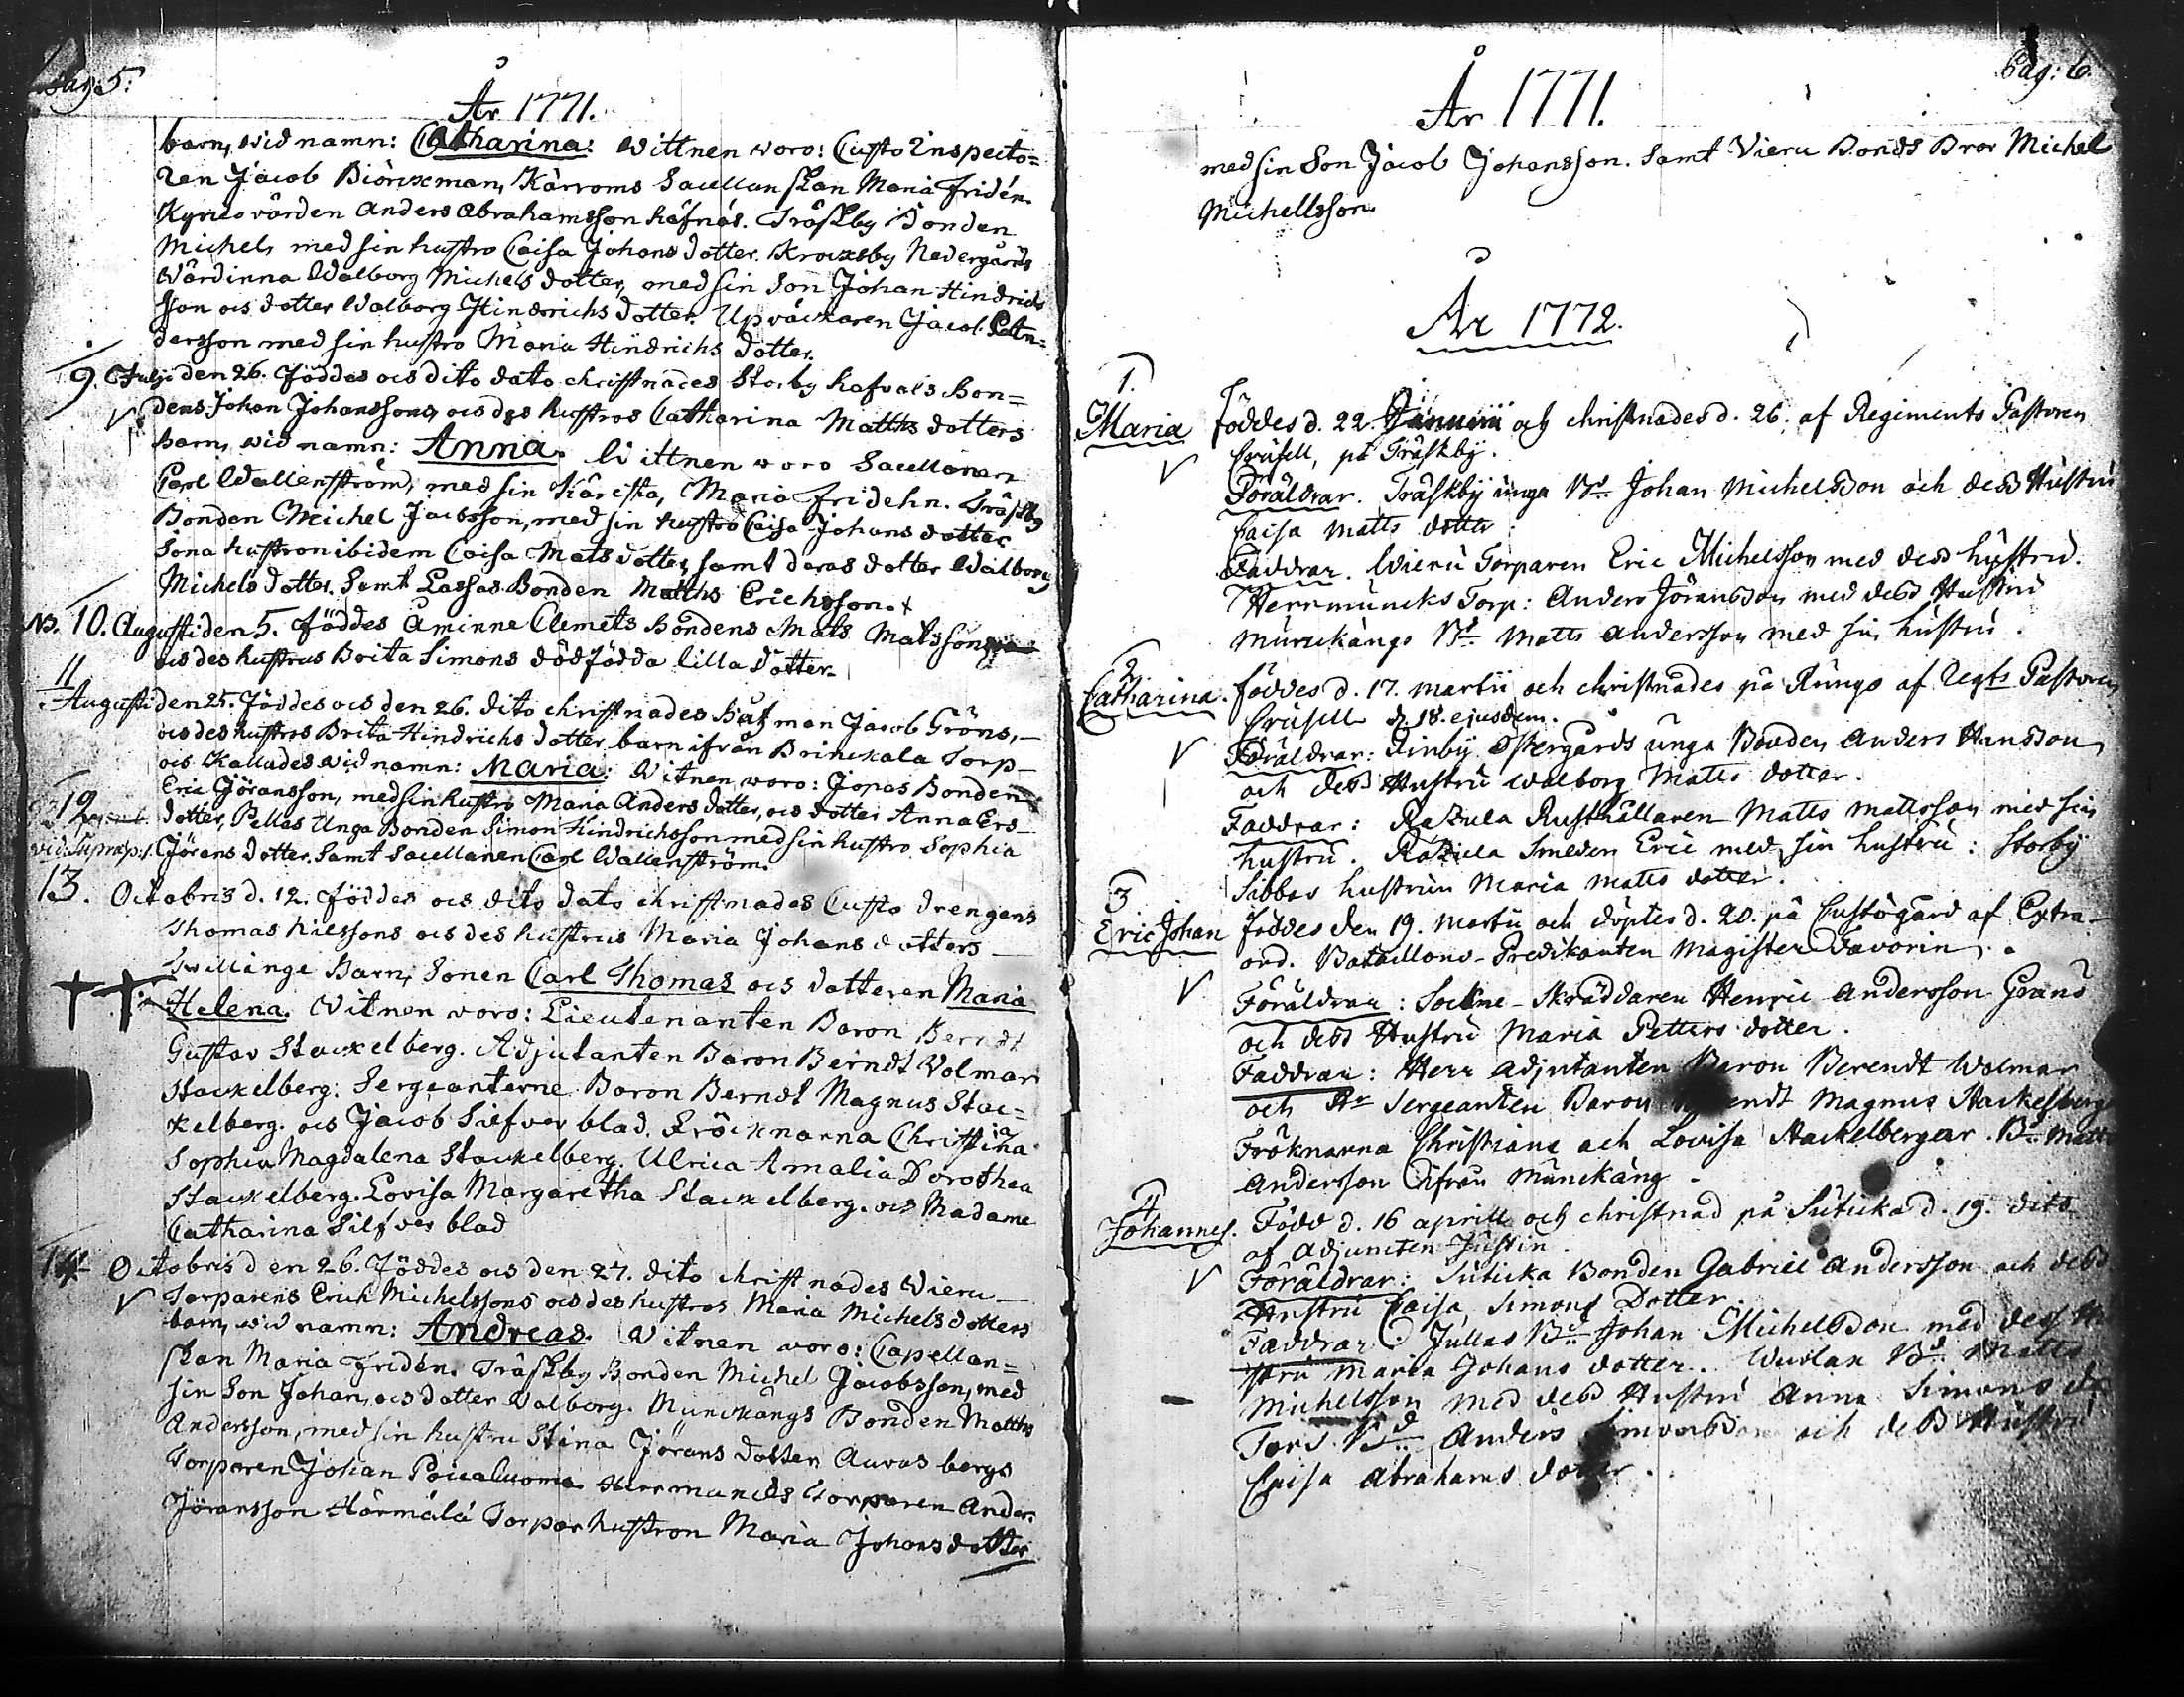 Pag: 5.
År 1771.
barn, wid namn: Catharina: Wittnen woro: Custo Inspecto=
ren Jacob Biörckman, Kärroms Sacellan skan Maria Fridén.
Kyrcovärden Anders Abrahamsson Räfnäs. Träskby Bonden
Michel, med sin hustro Caisa Johans dotter. Krocksby Nedergårds
Wärdinna Walborg Michels dotter, med sin Son Johan Hindrich
sson och dotter Walborg Hindrichs dotter. Upväckaren Jacob
dersson med sin hustro Maria Hindrichs dotter.
9. Julji den 26. föddes och dito dato christnades Storby Rafvals Bon=
dens Johan Johanssons, och des hustros Catharina Matths dotters
Barn, wid namn: Anna. Wittnen woro Sacellanen
Carl Wallenström, med sin Käresta, Maria Fridehn. Träskby
Bonden Michel Jacobsson, med sin hustro Caisa Johans dotter
Sona hustron ibidem Caisa Mats dotter, samt deras dotter Walborg
Michels dotter. Samt Lassas Bonden Matths Erichsson.
NB. 10. Augusti den 5. föddes Åminne Clemets Bondens Mats Matssons
och des hustrus Brita Simons dödfödda lilla dotter.
11
Augusti den 25. föddes och den 26. dito christnades Båtzman Jacob Gröns,
och des hustros Brita Hindrichs dotter barn ifrån Brinckala Torp
och Kallades wid namn: Maria: Witnen woro: Jopas Bonden
Eric Jöransson, med sin hustro Maria Anders dotter, och dotter Anna Ers
12 dotter, Pellas Unga Bonden Simon Hindrichsson med sin hustro Sophia
vid. supra p. 1. Jörans dotter. Samt Sacellanen Carl Wallenström.
13. Octobris d. 12. föddes och dito dato christnades Custo drengens
Thomas Nilssons och des hustrus Maria Johans dotters
Twillinge Barn, Sonen Carl Thomas och dotteren Maria
Helena. Witnen woro: Lieutenanten Baron Berndt
Gustav Stackelberg. Adjutanten Baron Berndt Volmar
Stackelberg. Sergeanterne Baron Berndt Magnus Stac=
kelberg. och Jacob Silfver blad. Fröcknarna Christina
Sophia Magdalena Stackelberg. Ulrica Amalia Dorothea
Stackelberg. Lovisa Margaretha Stackelberg. och Madame
Catharina Silfver blad
14 Octobris den 26. föddes och den 27. dito christnades Wieru
Torparens Erich Michelssons och des hustros Maria Michels dotters
barn, wid namn: Andreas. Witnen woro: Capellan=
skan Maria Fridén. Träskby Bonden Michel Jacobsson, med
sin Son Johan, och dotter Valborg. Munckängs Bonden Matths
Andersson, med sin hustru Stina Jörans dotter Auvas bergs
Torparen Johan Poicaluoma Herrmuncks Torparen Anders
Jöransson Härmälä Torpar hustron Maria Johans dotter
Pag: 6.
År 1771.
med sin Son Jacob Johansson. Samt Vieru Bonds Bror Michel
Michellsson.
År 1772.
1.
Maria föddes d. 22. Januarii och christnades d. 26. af Regiments Pastoren
Crusell, på Träskby.
Föräldrar. Träskby unga Bd. Johan Michelsson och dess Hustru
Caisa Matts dotter:
Faddrar. Wieru Torparen Eric Michelsson med dess hustru.
Herrmuncks Torp: Anders Jöransson med dess Hustru
Munckängs Bd. Matts Andersson med sin hustru.
2
Catharina. föddes d. 17. Martii och christnades på Rungo af Regts Pastoren
Crusell d. 18. ejusdem.
Föräldrar: Finby Östergårds unga Bonden Anders Hansson
och dess Hustru Walborg Matts dotter.
Faddrar: Razula Rusthållaren Matts Mattsson med sin
hustru. Razula Smeden Eric med sin hustru: Storby
Sibbas hustrun Maria Matts dotter.
3
Eric Johan föddes den 19. Martii och döptes d. 20. på Custögård af Extra
ord. Bataillons-Predikanten Magister Favorin.
Föräldrar: Sockne-Skräddaren Henric Andersson Grand
och dess Hustru Maria Petters dotter.
Faddrar: Herr Adjutanten Baron Berendt Wolmar
och Hr Sergeanten Baron Berendt Magnus Stackelberg
Fröknarna Christiana och Lovisa Stackelbergar. Bd. Matts
Andersson ifrån Munckäng.
4
Johannes. Född d. 16 aprill och christnad på Suticka d. 19. dito
af Adjuncten Justin.
Föräldrar: Suticka Bonden Gabriel Andersson och dess
Hustru Caisa Simons Dotter.
Faddrar: Jullas Bd. Johan Michelsson med dess Hu
stru Maria Johans dotter. Bd. Matts
Michelsson med dess Hustru Anna Simons
Tors Bd. Anders Simonsson och dess Hustru
Caisa Abrahams dotter.